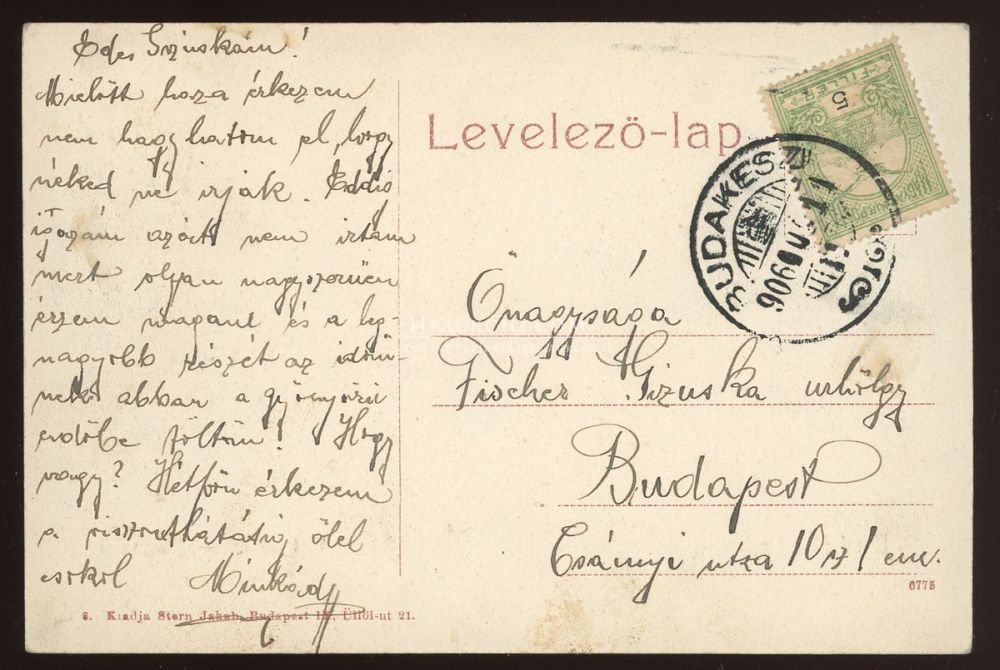 Édes Gizuskám!
Mielőtt haza érkezem
nem hagyhatom el, hogy
néked ne irjak. Eddig
igazán azért nem irtam
mert olyan nagyszerűen
érzem magamt és a leg-
nagyobb részét az időm-
nek abban a gyönyörű
erdőbe töltöm! Hogy
vagy? Hétfőn érkezem
a viszontlátásig ölel
csókol Minkád
Levelező-lap
FILLÉR
5
BUDAKESZI
906
Önagysága
Fischer Gizuska urhölgy
Budapest
Csányi utza 10 sz 1 em.
6775
8. Kiadja Stern Jakab, Budapest IX, Üllői-ut 21.